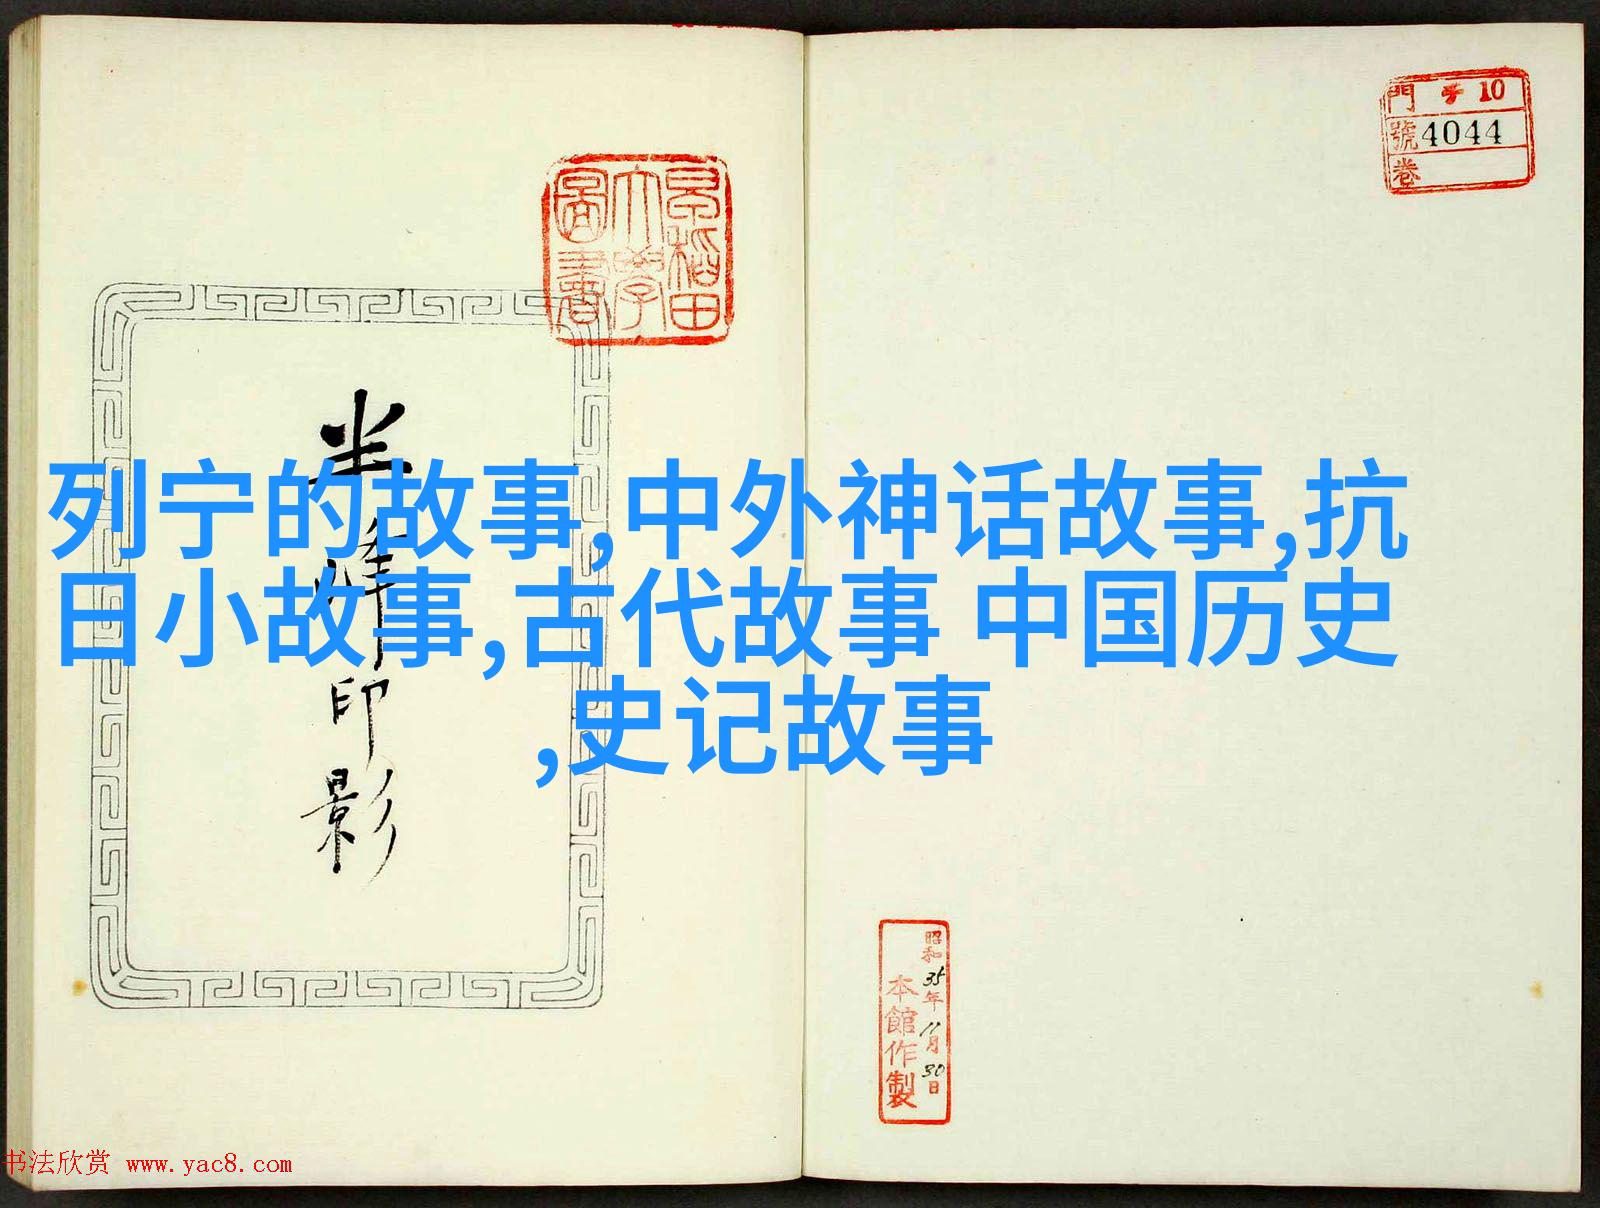 門 チ 10
號 4044
卷
早稲田
大學
圖書
半峰印影
列宁的故事,中外神话故事,抗
日小故事,古代故事 中国历史
,史记故事
昭和35年11月30日
本館作製
书法欣赏 www.yac8.com